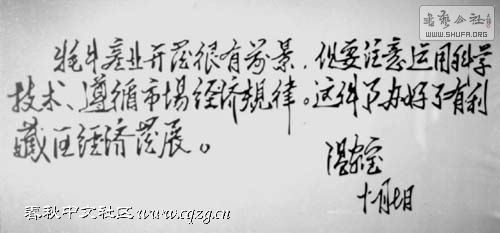 书艺公社
WWW.SHUFA.ORG
牦牛产业开发很有前景，但要注意运用科学
技术、遵循市场经济规律。这件事办好了有利
藏区经济发展。
温家宝
十月七日
春秋中文社区www.cqzg.cn